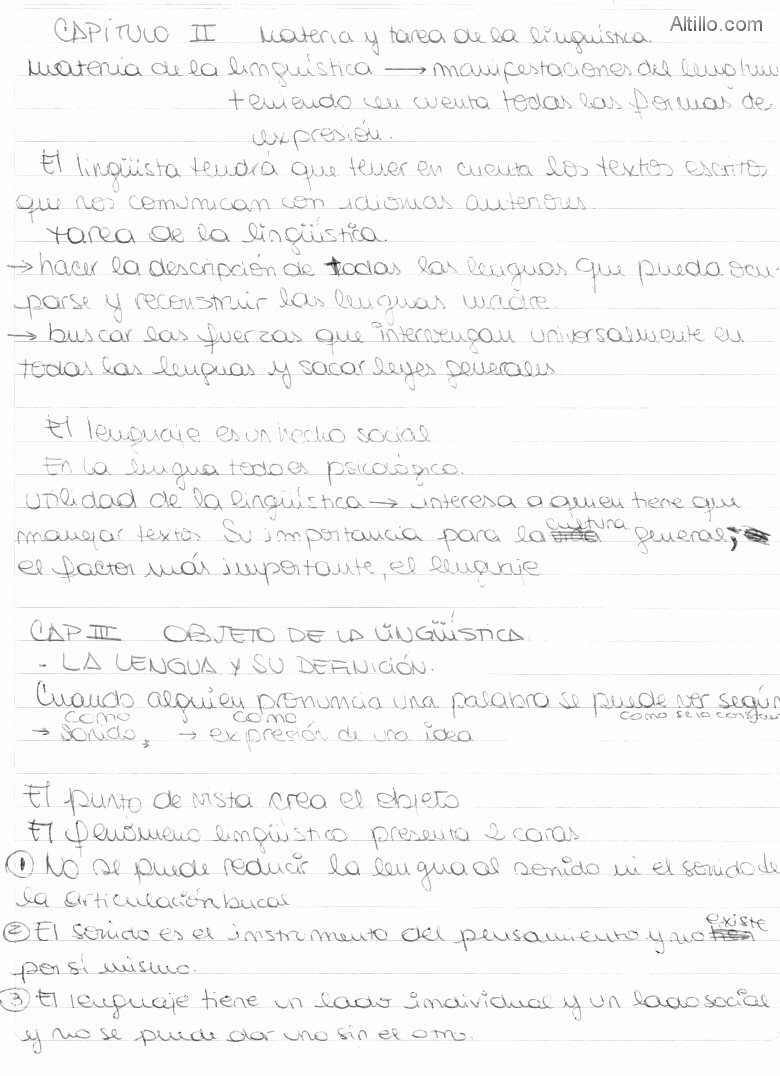 Altillo.com
CAPÍTULO II Materia y tarea de la lingüística.
Materia de la lingüística → manifestaciones del
teniendo en cuenta todas las formas de
expresión.
El lingüista tendrá que tener en cuenta los textos escritos
que nos comunican con idiomas anteriores
Tarea de la lingüística.
→ hacer la descripción de todas las lenguas que pueda ocu-
parse y reconstruir las lenguas madre
→ buscar las fuerzas que intervengan universalmente en
todas las lenguas y sacar leyes generales
El lenguaje es un hecho social
En la lengua todo es psicológico.
Utilidad de la lingüística → interesa a quien tiene que
manejar textos. Su importancia para la cultura general;
el factor más importante, el lenguaje
CAP III OBJETO DE LA LINGÜÍSTICA.
- LA LENGUA Y SU DEFINICIÓN.
Cuando alguien pronuncia una palabra se puede ver según como se la
→ como sonido, → como expresión de una idea
El punto de vista crea el objeto
El fenómeno lingüístico presenta 2 caras
① No se puede reducir la lengua al sonido ni el sonido de
la articulación bucal
② El sonido es el instrumento del pensamiento y no existe
por sí mismo.
③ El lenguaje tiene un lado individual y un lado social
y no se puede dar uno sin el otro.